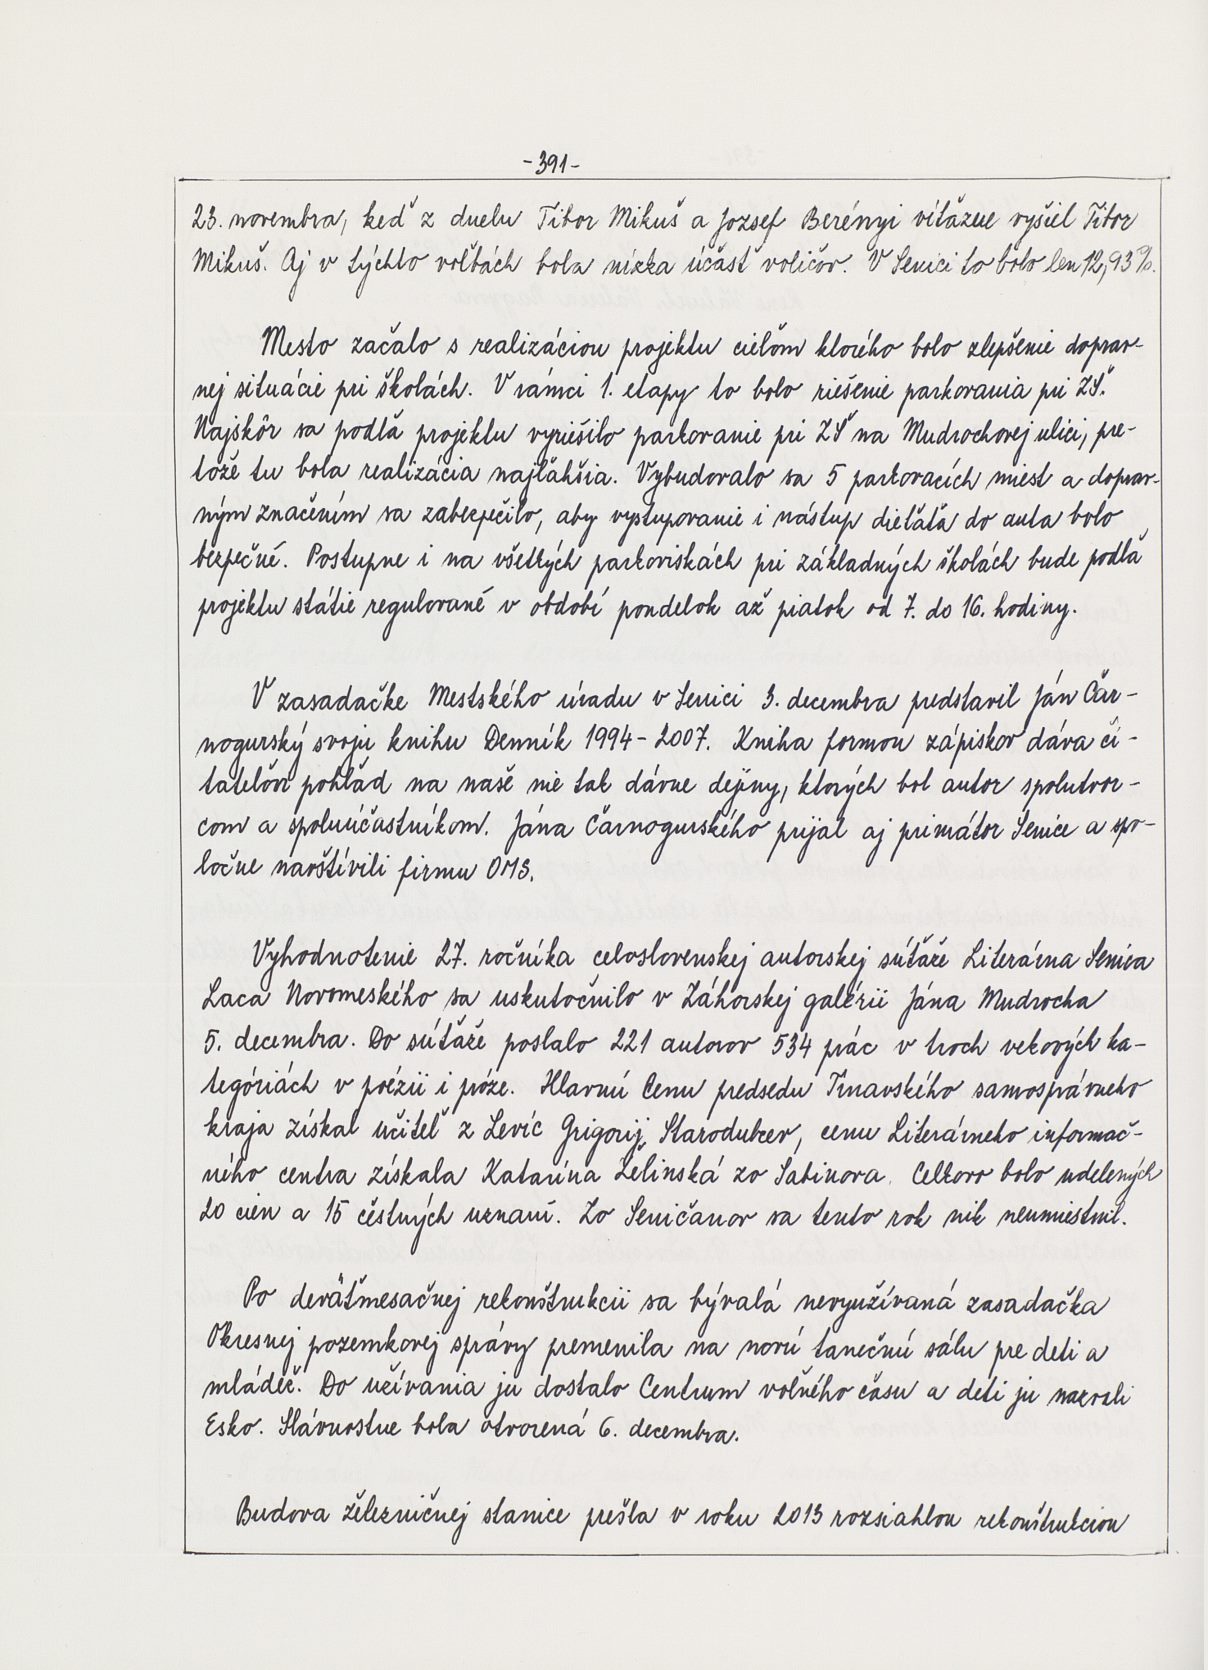 -391-
23. novembra, keď z duelu Tibor Mikuš a Jozsef Berényi víťazne vyšiel Tibor
Mikuš. Aj v týchto voľbách bola nízka účasť voličov. V Senici to bolo len 12,93 %.
Mesto začalo s realizáciou projektu cieľom ktorého bolo zlepšenie doprav-
nej situácie pri školách. V rámci 1. etapy to bolo riešenie parkovania pri ZŠ.
Najskôr sa podľa projektu vyriešilo parkovanie pri ZŠ na Mudrochovej ulici, pre-
tože tu bola realizácia najľahšia. Vybudovalo sa 5 parkovacích miest a doprav-
ným značením sa zabezpečilo, aby vystupovanie i nástup dieťaťa do auta bolo
bezpečné. Postupne i na všetkých parkoviskách pri základných školách bude podľa
projektu státie regulované v období pondelok až piatok od 7. do 16. hodiny.
V zasadačke Mestského úradu v Senici 3. decembra predstavil Ján Čar-
nogurský svoju knihu Denník 1994-2007. Kniha formou zápiskov dáva či-
tateľovi pohľad na naše nie tak dávne dejiny, ktorých bol autor spolutvor-
com a spoluúčastníkom. Jána Čarnogurského prijal aj primátor Senice a spo-
ločne navštívili firmu OMS.
Vyhodnotenie 27. ročníka celoslovenskej autorskej súťaže Literárna Senica
Laca Novomeského sa uskutočnilo v Záhorskej galérii Jána Mudrocha
5. decembra. Do súťaže poslalo 221 autorov 534 prác v troch vekových ka-
tegóriách v poézii i próze. Hlavnú Cenu predsedu Trnavského samosprávneho
kraja získal učiteľ z Levíc Grigorij Starodubcev, cenu Literárneho informač-
ného centra získala Katarína Želinská zo Sabinova. Celkovo bolo udelených
20 cien a 15 čestných uznaní. Zo Seničanov sa tento rok nik neumiestnil.
Po deväťmesačnej rekonštrukcii sa bývalá nevyužívaná zasadačka
Okresnej pozemkovej správy premenila na novú tanečnú sálu pre deti a
mládež. Do užívania ju dostalo Centrum voľného času a deti ju nazvali
Esko. Slávnostne bola otvorená 6. decembra.
Budova železničnej stanice prešla v roku 2013 rozsiahlou rekonštrukciou